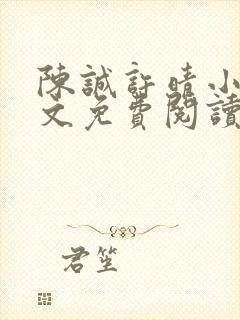 陳誠許晴小
文免費閱讀
君笙